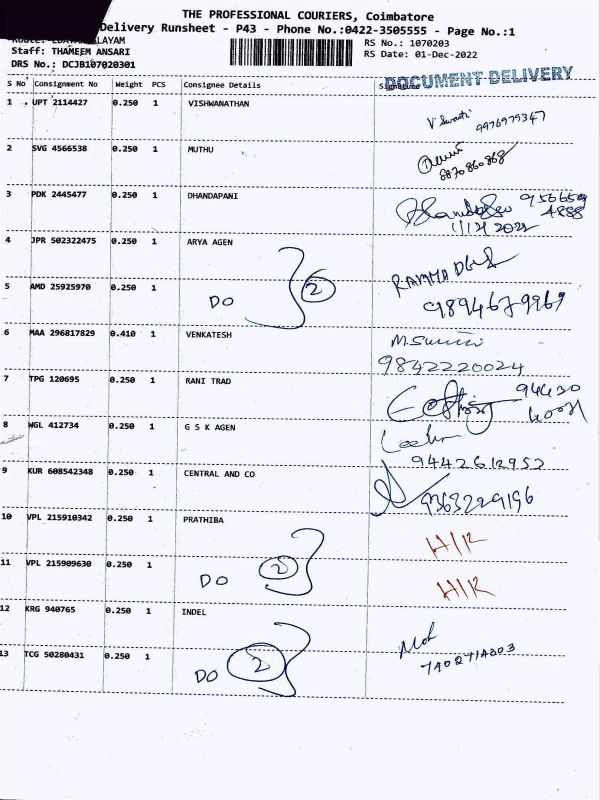 THE PROFESSIONAL COURIERS, Coimbatore
Delivery Runsheet - P43 - Phone No.:0422-3505555 - Page No.:1
RS No.: 1070203
Staff: THAMEEM ANSARI
RS Date: 01-Dec-2022
DRS No.: DCJB107020301
DOCUMENT DELIVERY
S No Consignment No Weight PCS Consignee Details Signature
1 UPT 2114427 0.250 1 VISHWANATHAN
9976979347
2 SVG 4566538 0.250 1 MUTHU
8870860868
3 PDK 2445477 0.250 1 DHANDAPANI
956650
4888
1/12/2022
4 JPR 502322475 0.250 1 ARYA AGEN
5 AMD 25925970 0.250 1
DO 2
9894679967
6 MAA 296817829 0.410 1 VENKATESH
9842220024
7 TPG 120695 0.250 1 RANI TRAD
94430
40071
8 WGL 412734 0.250 1 G S K AGEN
9442612952
9 KUR 608542348 0.250 1 CENTRAL AND CO
9363229196
10 VPL 215910342 0.250 1 PRATHIBA
H/R
11 VPL 215909630 0.250 1
DO 2 H/R
12 KRG 940765 0.250 1 INDEL
7402714303
13 TCG 50280431 0.250 1
DO 2